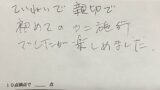 ていねいで 親切で
初めてのカニ施術
でしたが楽しめました。
10点満点で ___ 点